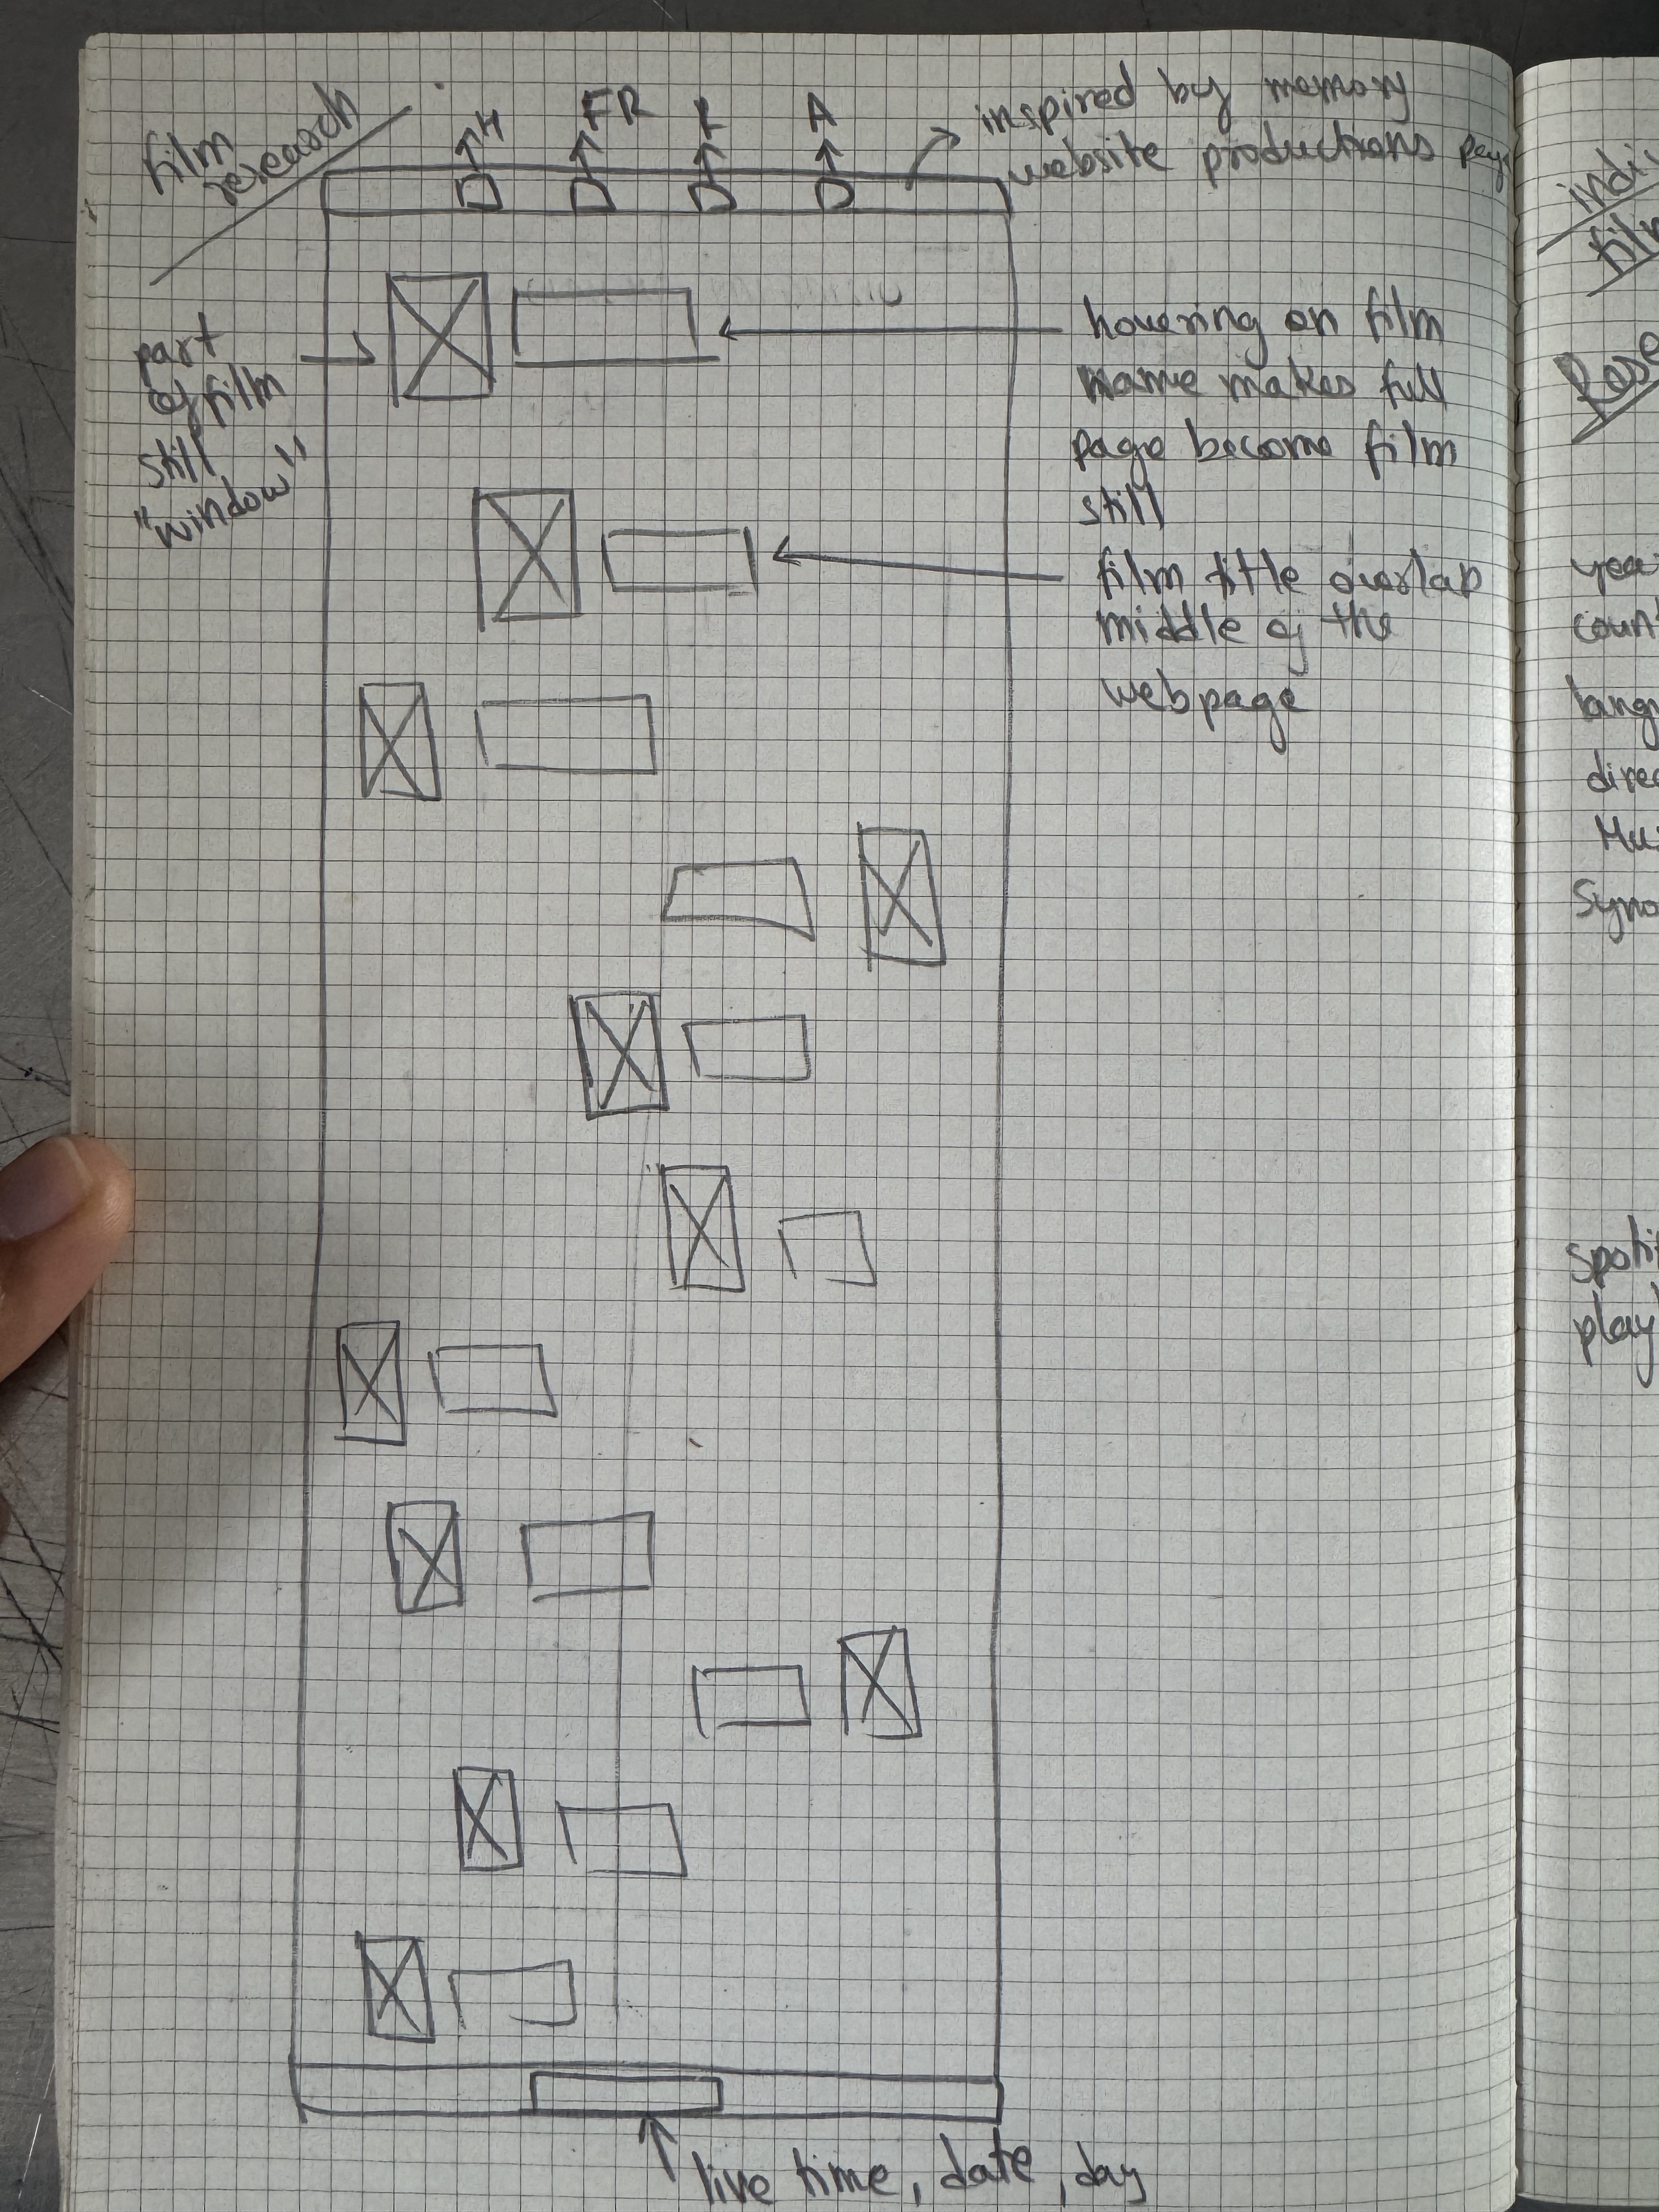 film
research
H
FR
A
inspired by memory
website productions
part
of film
still
"window"
hovering on film
name makes full
page become film
still
film title overlap
middle of the
webpage
live time, date, day
indi
film
Rose
year
count
lang
direc
Mus
Syno
spoti
play